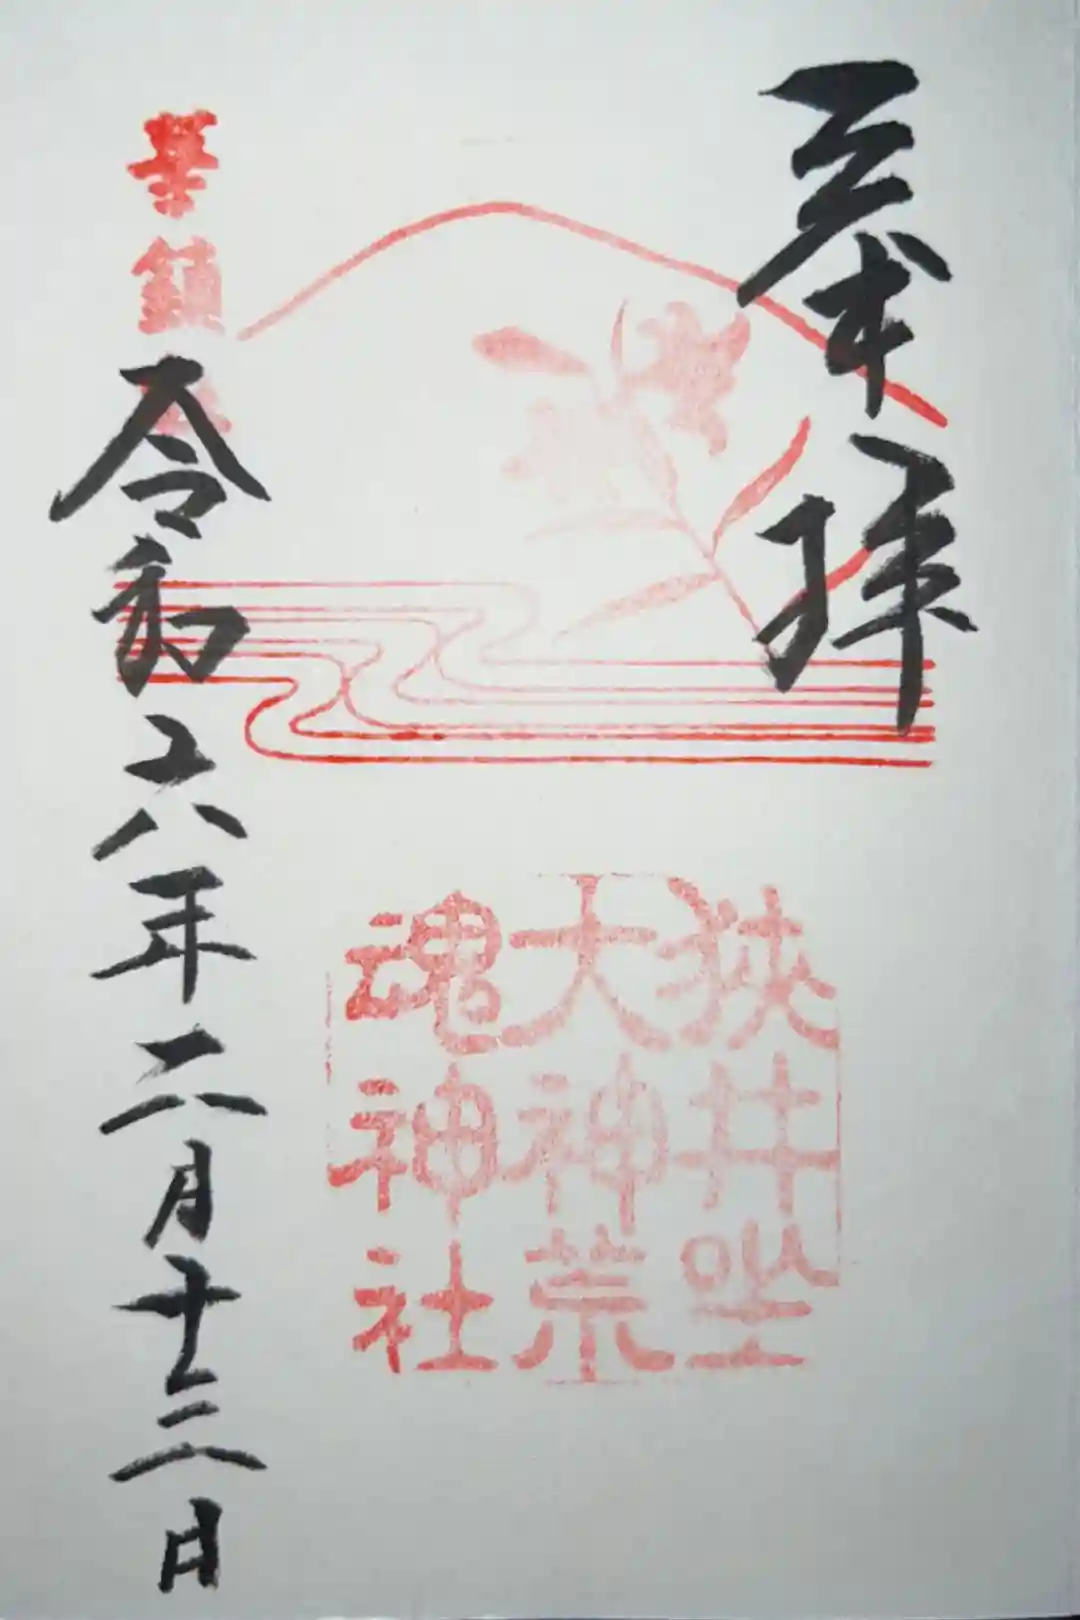 奉拝
狭井坐
大神荒
魂神社
華鎮
令和六年二月十三日